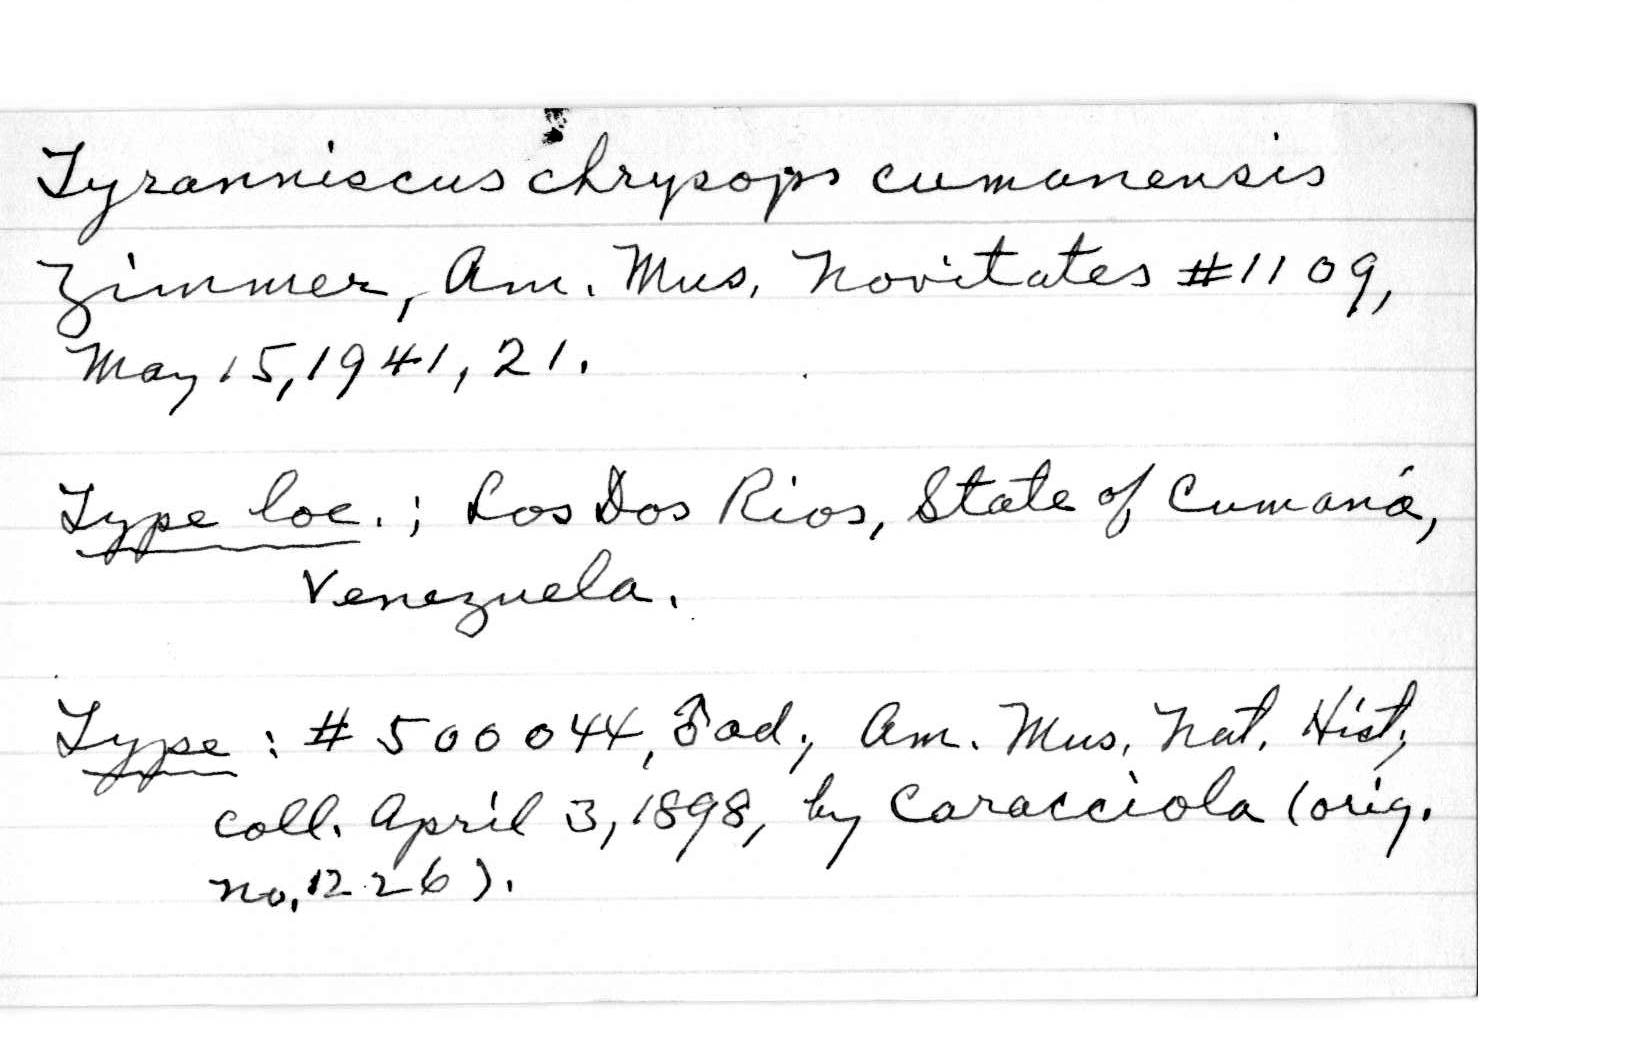 Tyranniscus chrysops cumanensis
Zimmer, Am. Mus. Novitates #1109,
May 15, 1941, 21.
Type loc.; Los Dos Rios, State of Cumaná,
Venezuela.
Type: # 500044, ♂ ad.; Am. Mus. Nat. Hist;
coll. April 3, 1898, by Caracciola (orig.
no. 1226).